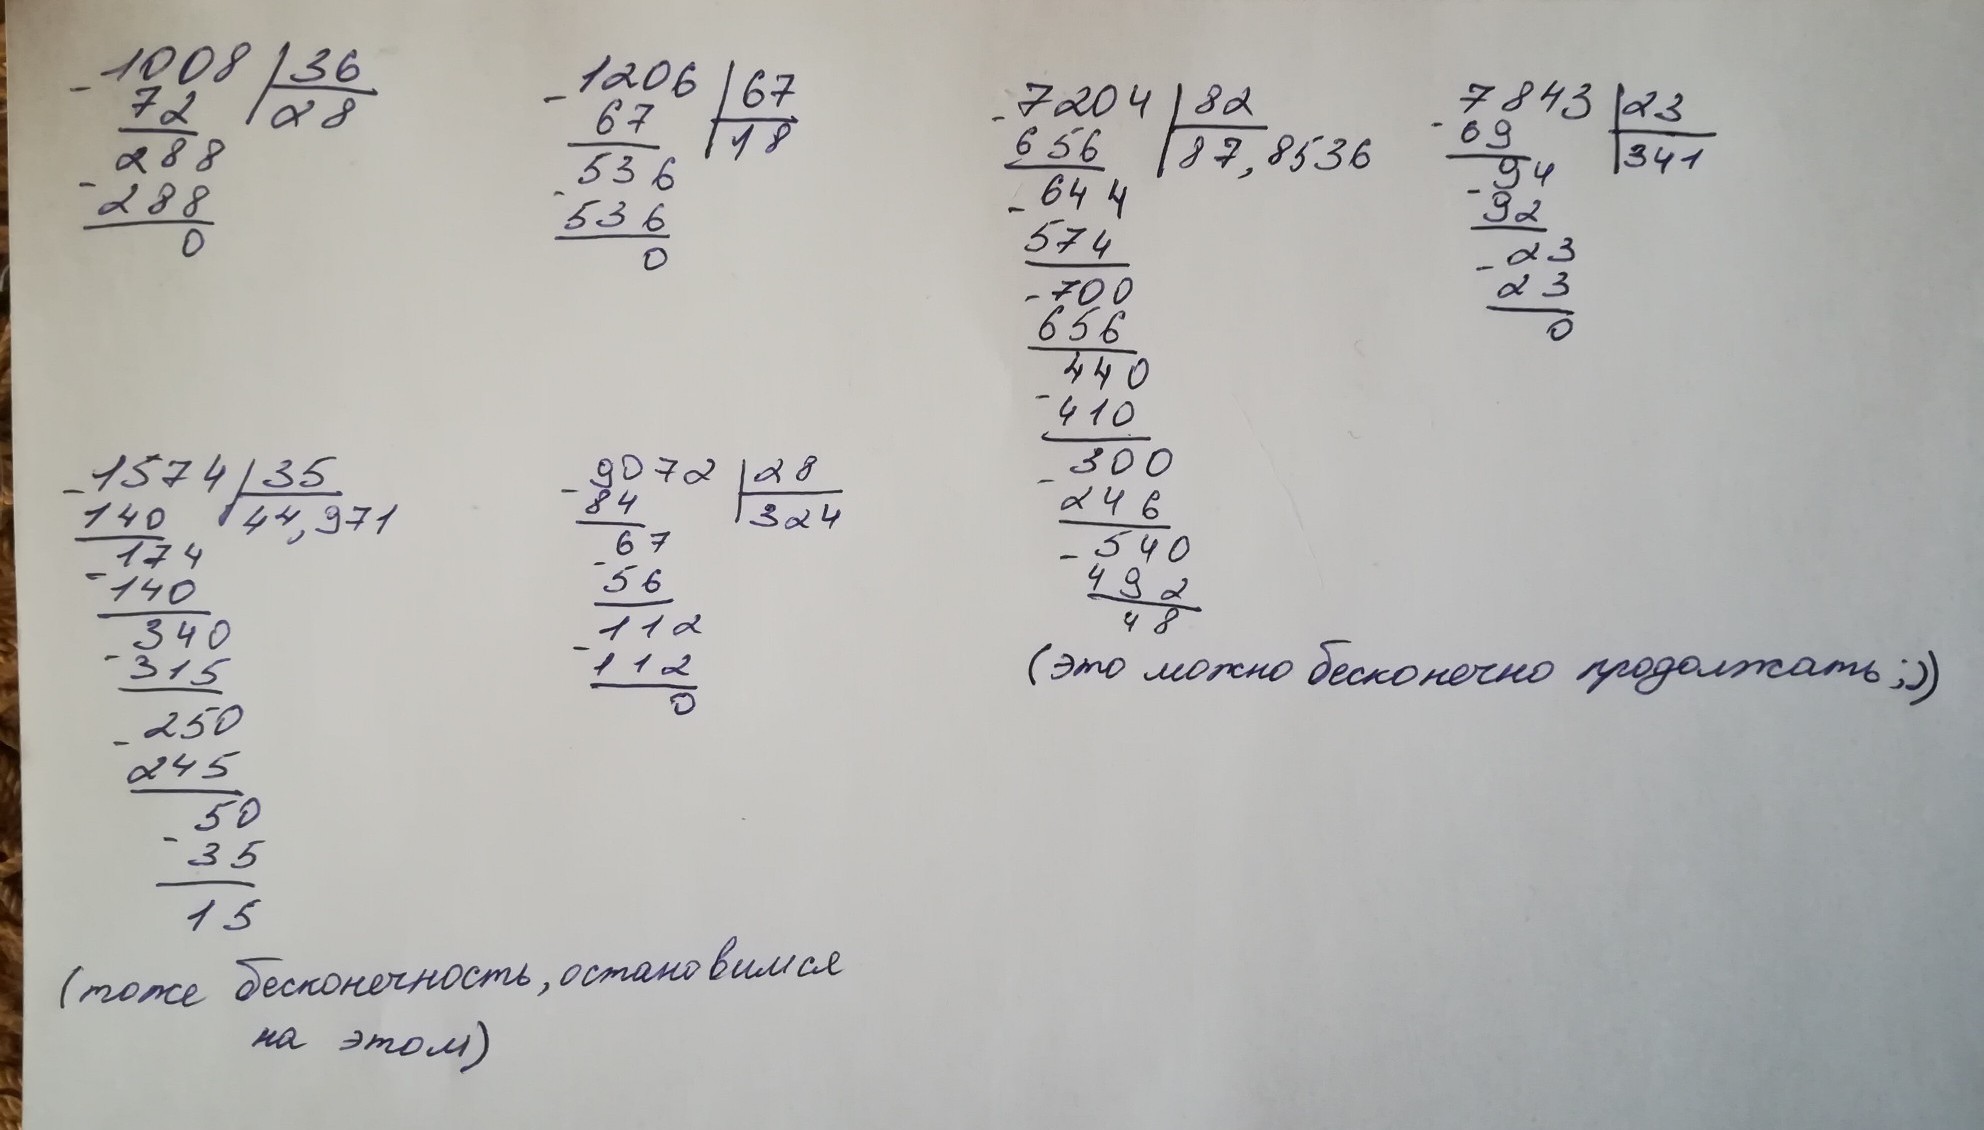 - 1008 | 36
72 28
288
- 288
0
- 1206 | 67
67 18
536
- 536
0
- 7204 | 82
656 87,8536
- 644
574
- 700
656
440
- 410
300
- 246
- 540
492
48
(это можно бесконечно продолжать ;))
7843 | 23
- 69 341
94
- 92
23
- 23
0
- 1574 | 35
140 44,971
174
- 140
340
- 315
- 250
245
50
- 35
15
(тоже бесконечность, остановимся
на этом)
- 9072 | 28
84 324
67
- 56
112
- 112
0